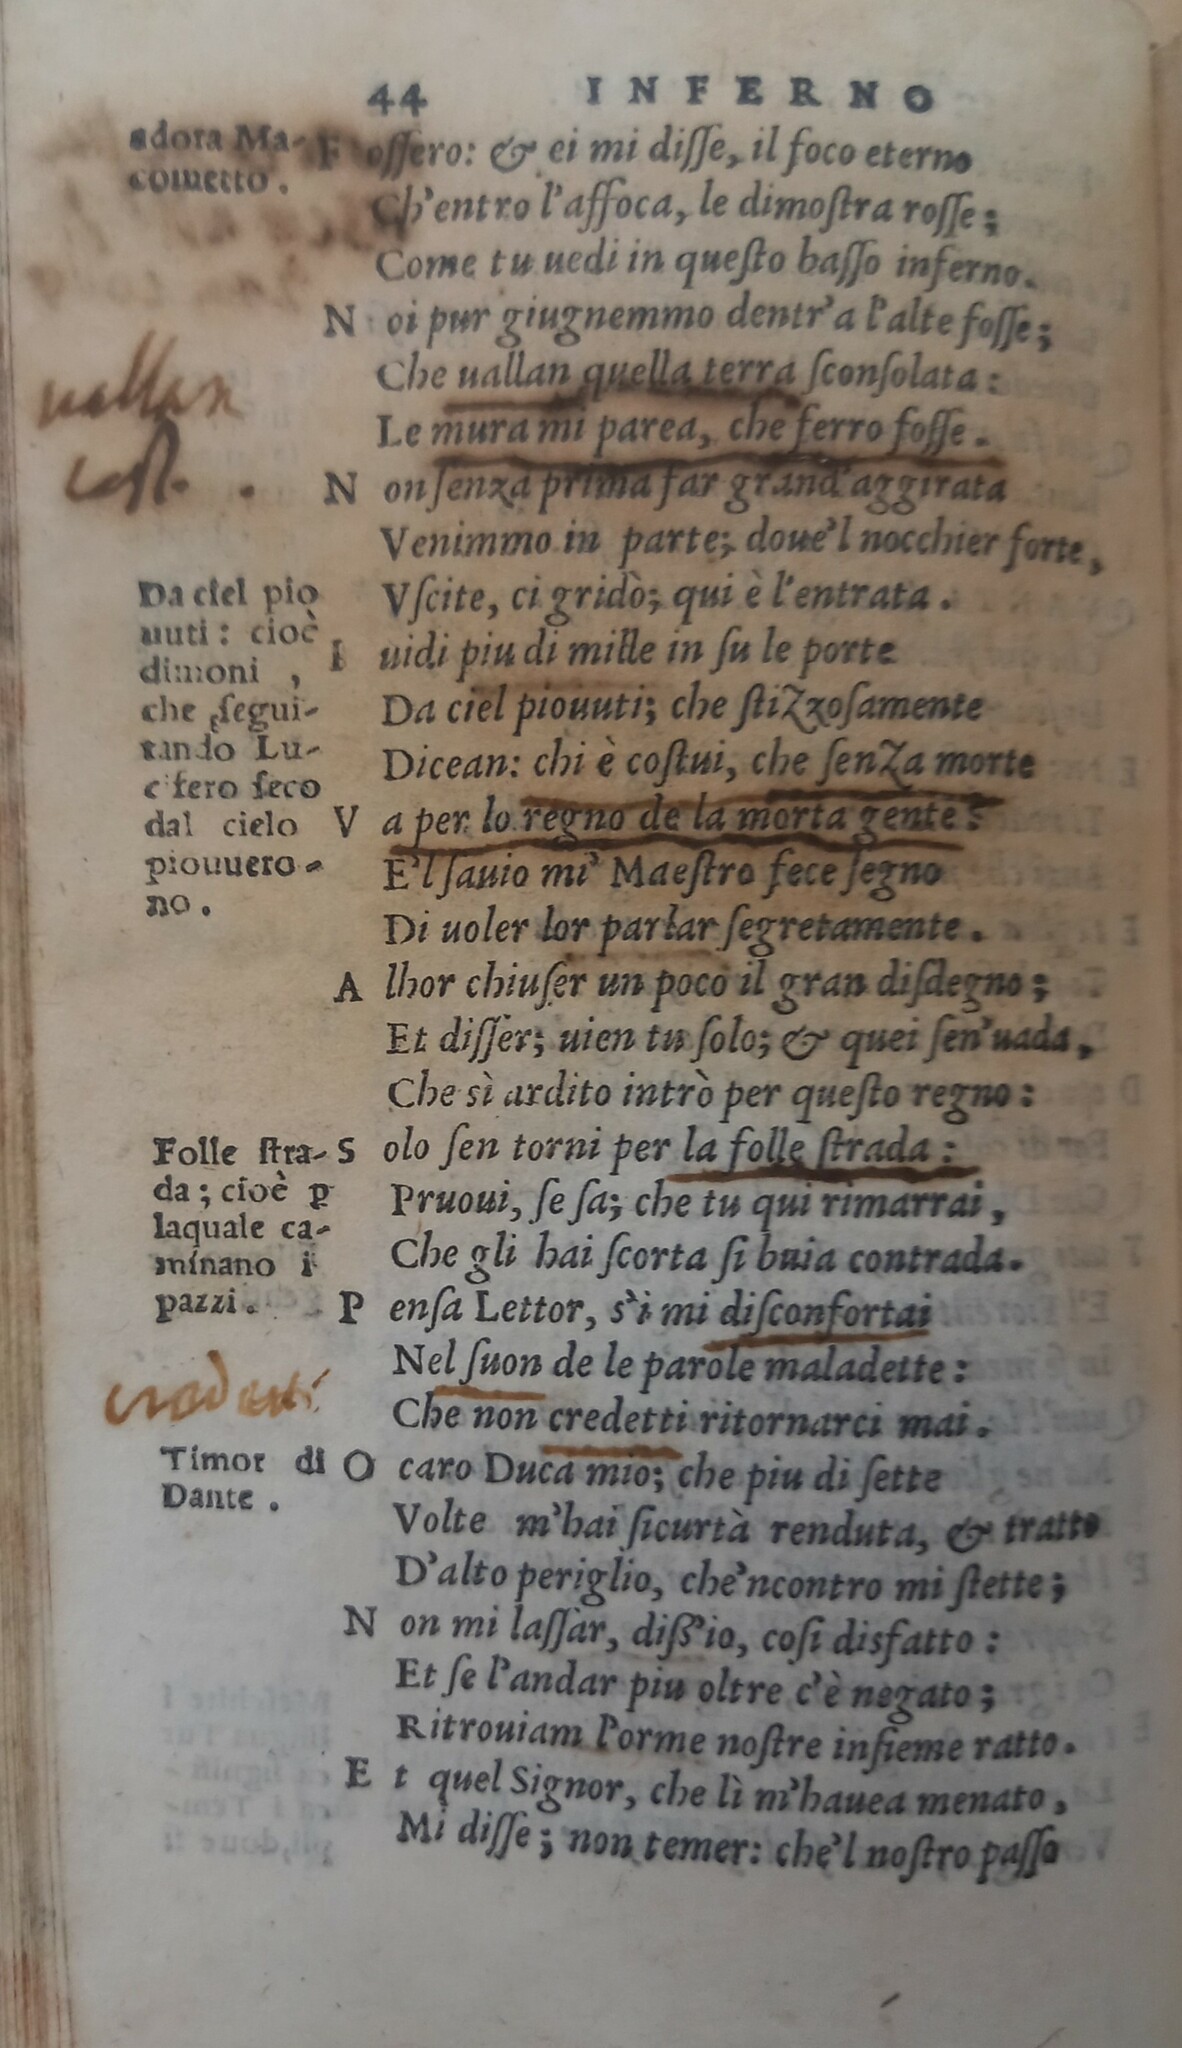 44 INFERNO
adora Ma-
cometto.
Foſſero: & ei mi diſſe, il foco eterno
Ch'entro l'affoca, le dimoſtra roſſe;
Come tu uedi in queſto baſſo inferno.
Noi pur giugnemmo dentr'a l'alte foſſe;
Che uallan quella terra ſconſolata:
uallan
Le mura mi parea, che ferro foſſe.
Non ſenza prima far grand'aggirata
Venimmo in parte; doue'l nocchier forte,
Vſcite, ci gridò; qui è l'entrata.
Da ciel pio
uuti: cioè
dimoni,
che ſegui-
tando Lu-
cifero ſeco
dal cielo
piouuero-
no.
I uidi piu di mille in ſu le porte
Da ciel piouuti; che ſtizzoſamente
Dicean: chi è coſtui, che ſenza morte
Va per lo regno de la morta gente?
E'l ſauio mi' Maeſtro fece ſegno
Di uoler lor parlar ſegretamente.
Alhor chiuſer un poco il gran diſdegno;
Et diſſer; uien tu ſolo; & quei ſen'uada,
Che sì ardito intrò per queſto regno:
Folle ſtra-
da; cioè p
laquale ca-
minano i
pazzi.
Solo ſen torni per la folle ſtrada:
Pruoui, ſe ſa; che tu qui rimarrai,
Che gli hai ſcorta ſi buia contrada.
Penſa Lettor, s'i mi diſconfortai
Nel ſuon de le parole maladette:
credetti
Che non credetti ritornarci mai.
Timor di
Dante.
O caro Duca mio; che piu di ſette
Volte m'hai ſicurtà renduta, & tratto
D'alto periglio, che'ncontro mi ſtette;
Non mi laſſar, diſs'io, coſi disfatto:
Et ſe l'andar piu oltre c'è negato;
Ritrouiam l'orme noſtre inſieme ratto.
Et quel Signor, che lì m'hauea menato,
Mi diſſe; non temer: che'l noſtro paſſo